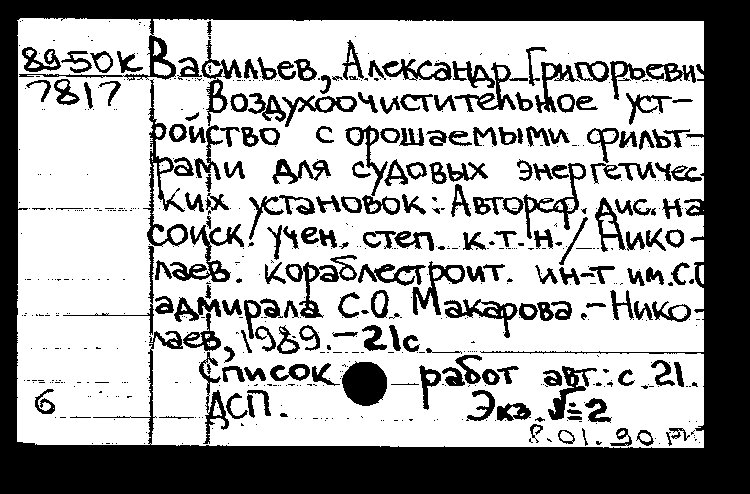 89-50К Васильев, Александр Григорьевич
7817 Воздухоочистительное уст-
ройство с орошаемыми фильт-
рами для судовых энергетичес-
ких установок: Автореф. дис. на
соиск. учен. степ. к.т.н. / Нико-
лаев. кораблестроит. ин-т им. С.О
адмирала С.О. Макарова. - Нико-
лаев, 1989. - 21с.
Список работ авт.: с. 21.
6 ДСП. Экз. √=2
8.01.90